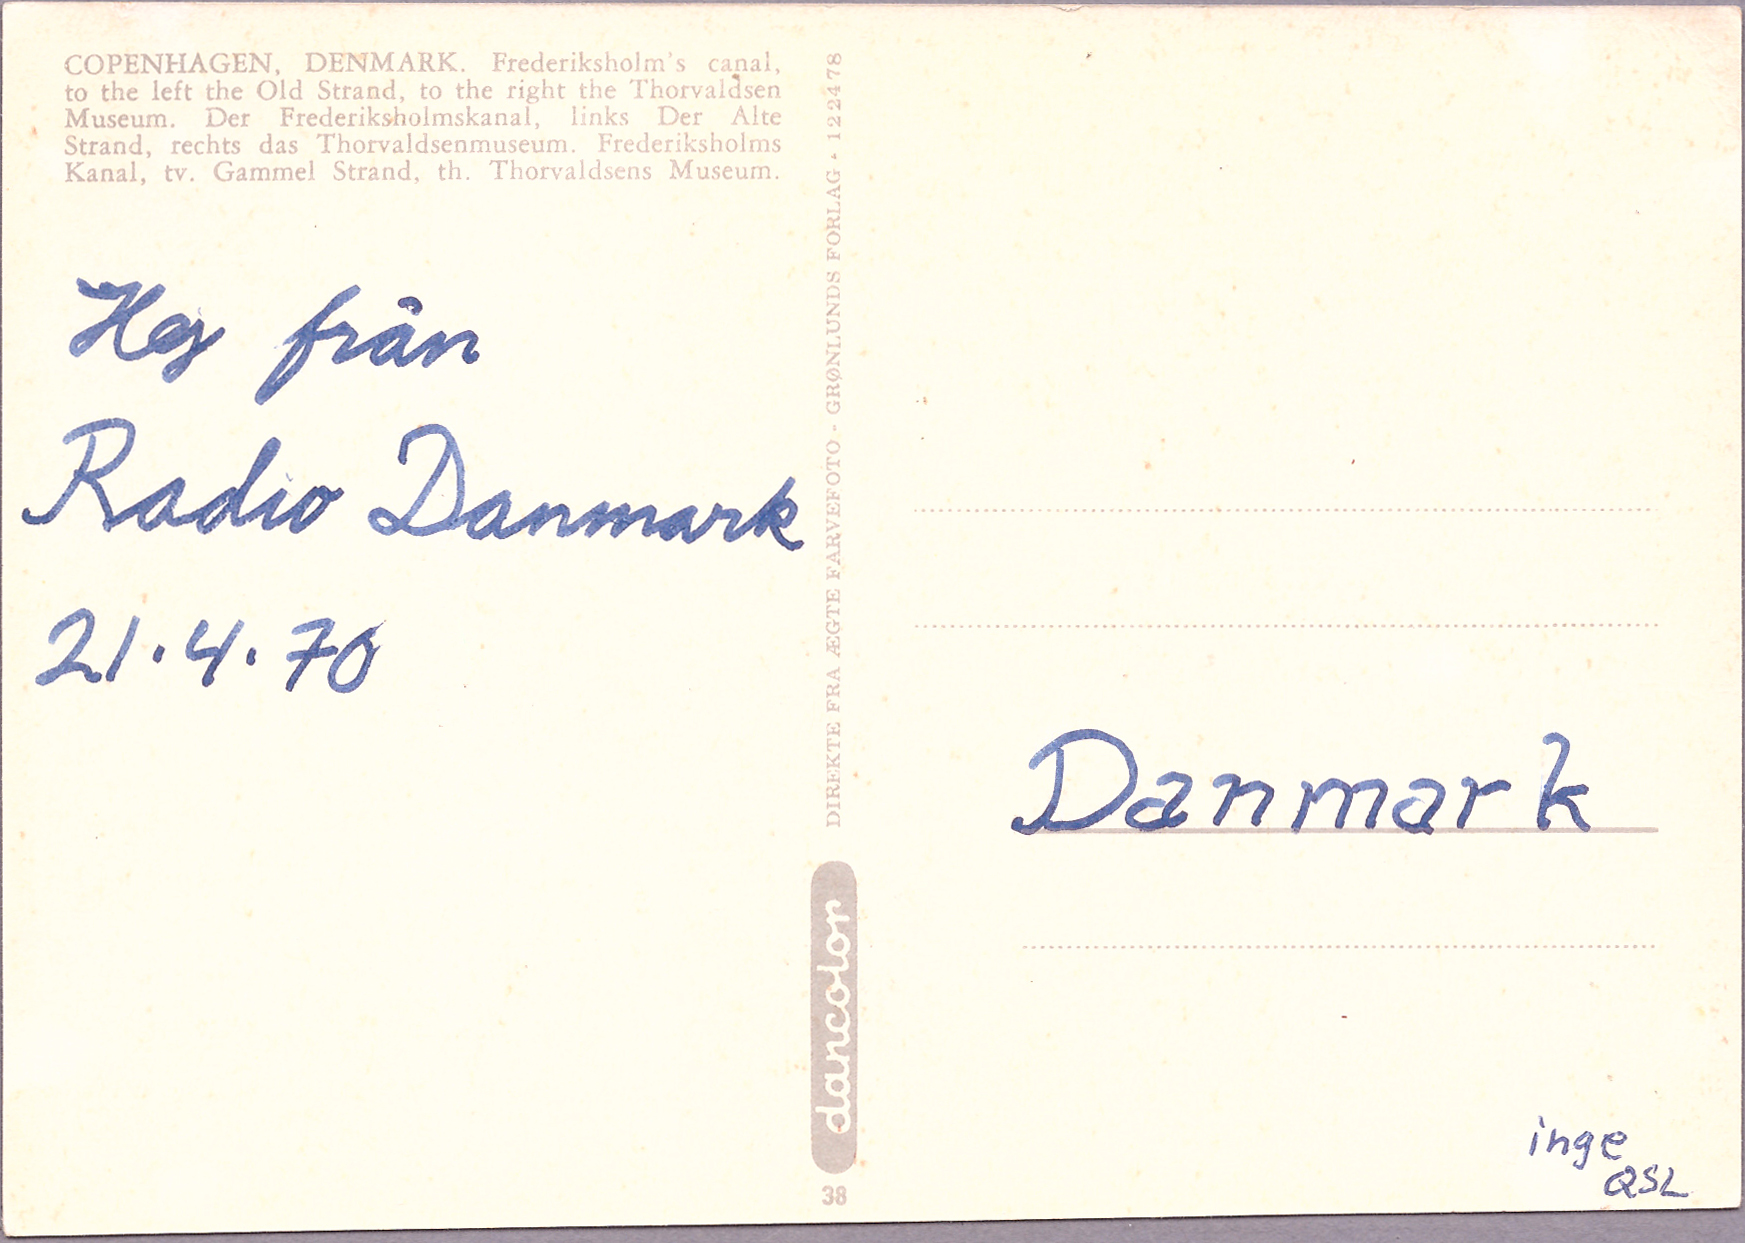 COPENHAGEN, DENMARK. Frederiksholm's canal,
to the left the Old Strand, to the right the Thorvaldsen
Museum. Der Frederiksholmskanal, links Der Alte
Strand, rechts das Thorvaldsenmuseum. Frederiksholms
Kanal, tv. Gammel Strand, th. Thorvaldsens Museum.
Hej från
Radio Danmark
21.4.70
DIREKTE FRA ÆGTE FARVEFOTO - GRØNLUNDS FORLAG - 122478
dancolor
38
Danmark
inge
QSL